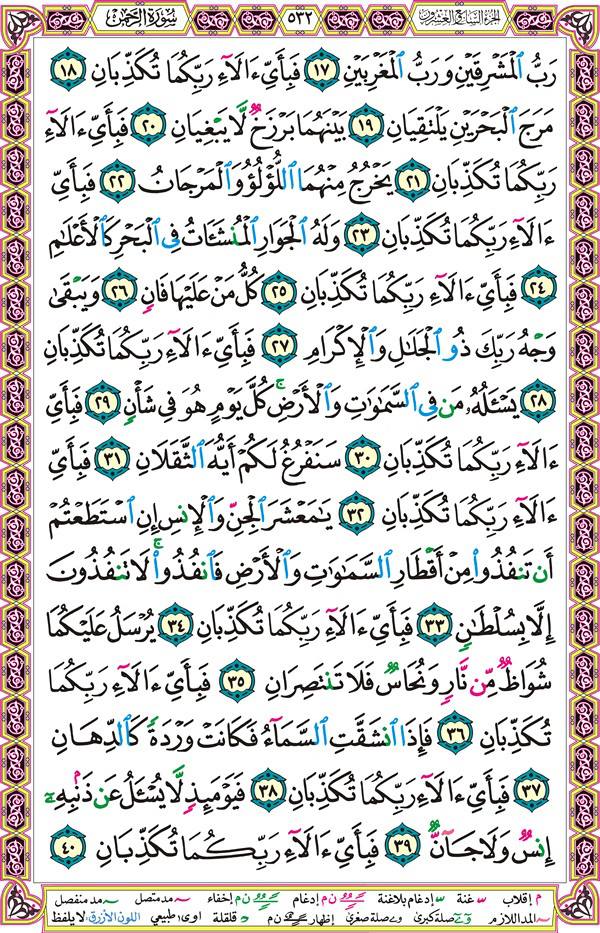 سُورَةُ الرَّحْمَٰن ٥٣٢ الجُزءُ السَّابِعُ وَالعِشْرُون
رَبُّ ٱلْمَشْرِقَيْنِ وَرَبُّ ٱلْمَغْرِبَيْنِ ١٧ فَبِأَيِّ ءَالَآءِ رَبِّكُمَا تُكَذِّبَانِ ١٨
مَرَجَ ٱلْبَحْرَيْنِ يَلْتَقِيَانِ ١٩ بَيْنَهُمَا بَرْزَخٌ لَّا يَبْغِيَانِ ٢٠ فَبِأَيِّ ءَالَآءِ
رَبِّكُمَا تُكَذِّبَانِ ٢١ يَخْرُجُ مِنْهُمَا ٱللُّؤْلُؤُ وَٱلْمَرْجَانُ ٢٢ فَبِأَيِّ
ءَالَآءِ رَبِّكُمَا تُكَذِّبَانِ ٢٣ وَلَهُ ٱلْجَوَارِ ٱلْمُنشَـَٔاتُ فِى ٱلْبَحْرِ كَٱلْأَعْلَٰمِ
٢٤ فَبِأَيِّ ءَالَآءِ رَبِّكُمَا تُكَذِّبَانِ ٢٥ كُلُّ مَنْ عَلَيْهَا فَانٍ ٢٦ وَيَبْقَىٰ
وَجْهُ رَبِّكَ ذُو ٱلْجَلَٰلِ وَٱلْإِكْرَامِ ٢٧ فَبِأَيِّ ءَالَآءِ رَبِّكُمَا تُكَذِّبَانِ
٢٨ يَسْـَٔلُهُۥ مَن فِى ٱلسَّمَٰوَٰتِ وَٱلْأَرْضِ ۚ كُلَّ يَوْمٍ هُوَ فِى شَأْنٍ ٢٩ فَبِأَيِّ
ءَالَآءِ رَبِّكُمَا تُكَذِّبَانِ ٣٠ سَنَفْرُغُ لَكُمْ أَيُّهَ ٱلثَّقَلَانِ ٣١ فَبِأَيِّ
ءَالَآءِ رَبِّكُمَا تُكَذِّبَانِ ٣٢ يَٰمَعْشَرَ ٱلْجِنِّ وَٱلْإِنسِ إِنِ ٱسْتَطَعْتُمْ
أَن تَنفُذُوا۟ مِنْ أَقْطَارِ ٱلسَّمَٰوَٰتِ وَٱلْأَرْضِ فَٱنفُذُوا۟ ۚ لَا تَنفُذُونَ
إِلَّا بِسُلْطَٰنٍ ٣٣ فَبِأَيِّ ءَالَآءِ رَبِّكُمَا تُكَذِّبَانِ ٣٤ يُرْسَلُ عَلَيْكُمَا
شُوَاظٌ مِّن نَّارٍ وَنُحَاسٌ فَلَا تَنتَصِرَانِ ٣٥ فَبِأَيِّ ءَالَآءِ رَبِّكُمَا
تُكَذِّبَانِ ٣٦ فَإِذَا ٱنشَقَّتِ ٱلسَّمَآءُ فَكَانَتْ وَرْدَةً كَٱلدِّهَانِ
٣٧ فَبِأَيِّ ءَالَآءِ رَبِّكُمَا تُكَذِّبَانِ ٣٨ فَيَوْمَئِذٍ لَّا يُسْـَٔلُ عَن ذَنۢبِهِۦٓ
إِنسٌ وَلَا جَآنٌّ ٣٩ فَبِأَيِّ ءَالَآءِ رَبِّكُمَا تُكَذِّبَانِ ٤٠
م إقلاب غنة إدغام بلاغنة ن م إدغام ن م إخفاء مد متصل مد منفصل
المد اللازم صلة كبرى صلة صغرى إظهار ن م قلقلة اوى طبيعي اللون الأزرق: لا يلفظ